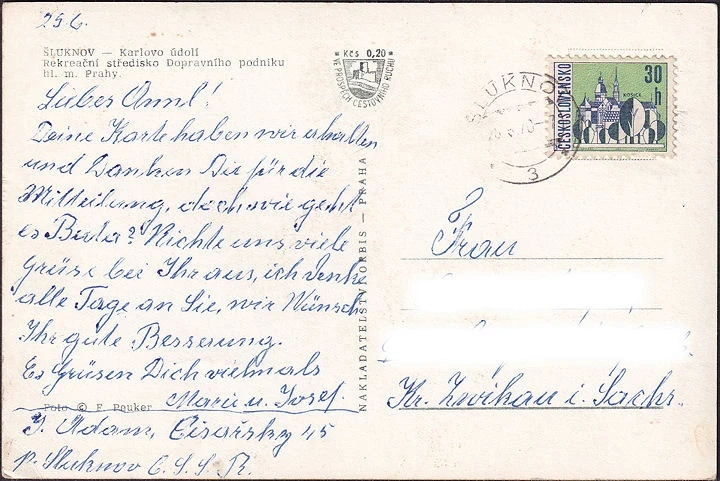 25.6.
ŠLUKNOV — Karlovo údolí
Rekreační středisko Dopravního podniku
hl. m. Prahy.
Liebes Annl!
Deine Karte haben wir erhalten
und Danken Dir für die
Mitteilung, doch wie geht
es Berta? Richte uns viele
Grüse bei Ihr aus, ich denke
alle Tage an Sie, wir Wünsch
Ihr gute Besserung.
Es Grüsen Dich vielmals
Marie u. Josef.
Foto © F. Peuker
J. Adam, Císařsky 45
p. Sluknov Č.S.S.R.
NAKLADATELSTVÍ ORBIS — PRAHA
* Kčs 0,20 *
VE PROSPĚCH CESTOVNÍHO RUCHU
ŠLUKNO
3
ČESKOSLOVENSKO
30 h
KOŠICE
Frau
Kr. Zwikau i. Sachs.